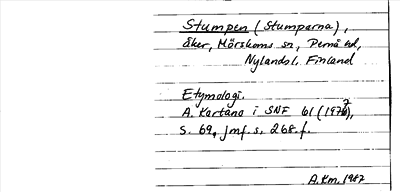 Stumpen (Stumparna),
åker, Mörskoms sn, Pernå hd,
Nylands l. Finland
Etymologi.
A. Kartano i SNF 61 (1973),
s. 69, jmf. s. 268 f.
A.Km. 1987